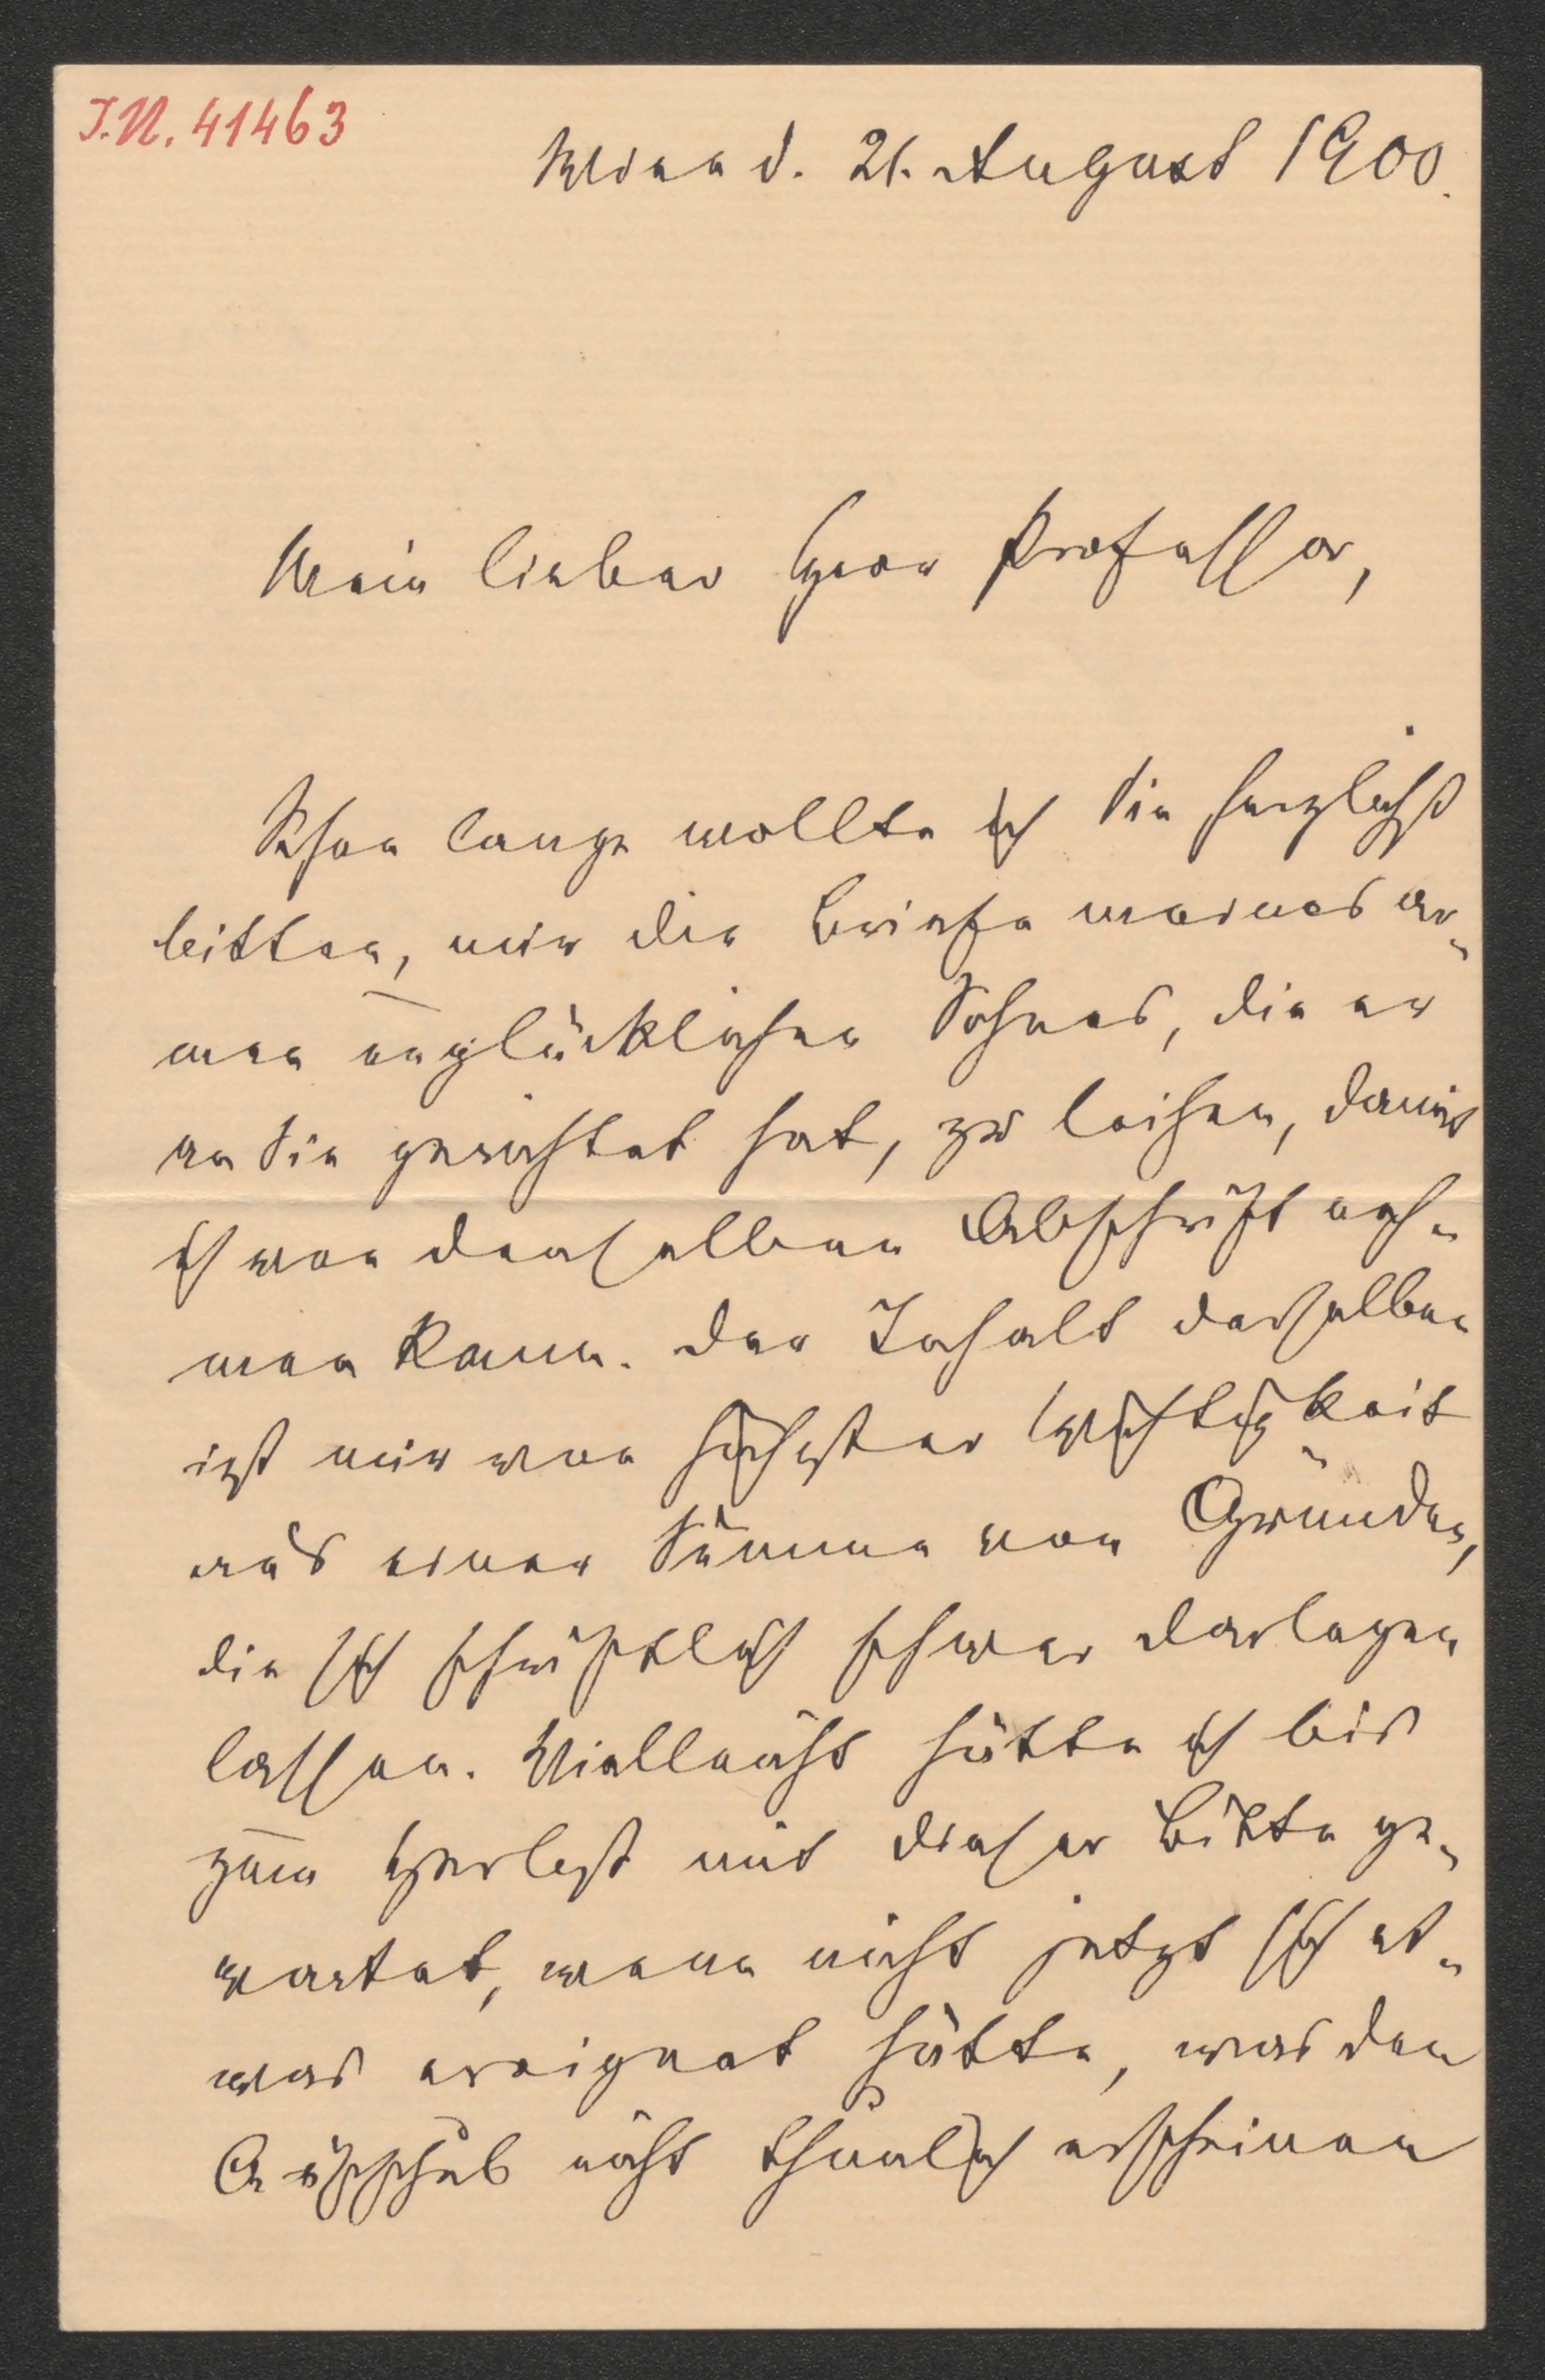 I.N. 41463
Wien d. 21. August 1900.
Mein lieber Herr Professor,
Schon lange wollte ich Sie herzlichst
bitten, mir die Briefe meines ar-
men unglücklichen Sohnes, die er
an Sie gerichtet hat, zu leihen, damit
ich von denselben Abschrift neh-
men kann. Der Inhalt derselben
ist mir von höchster Wichtigkeit
aus einer Summe von Gründen,
die sich schriftlich schwer darlegen
lassen. Vielleicht hätte ich bis
zum Herbst mit dieser Bitte ge-
wartet, wenn nicht jetzt sich et-
was ereignet hätte, was den
Aufschub nicht thunlich erscheinen